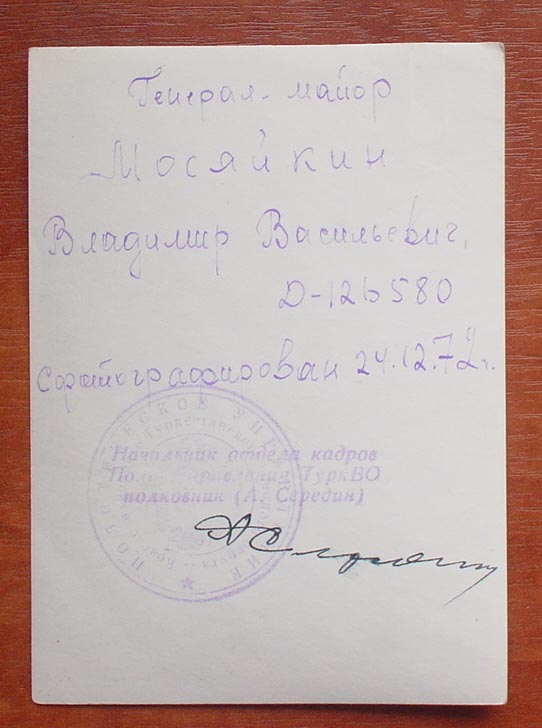 Генерал-майор
Мосяйкин
Владимир Васильевич,
Д-126580
Сфотографирован 24.12.72г.
Начальник отдела кадров
Политуправления ТуркВО
полковник (А. Середин)
ПОЛИТИЧЕСКОЕ УПРАВЛЕНИЕ
Туркестанского